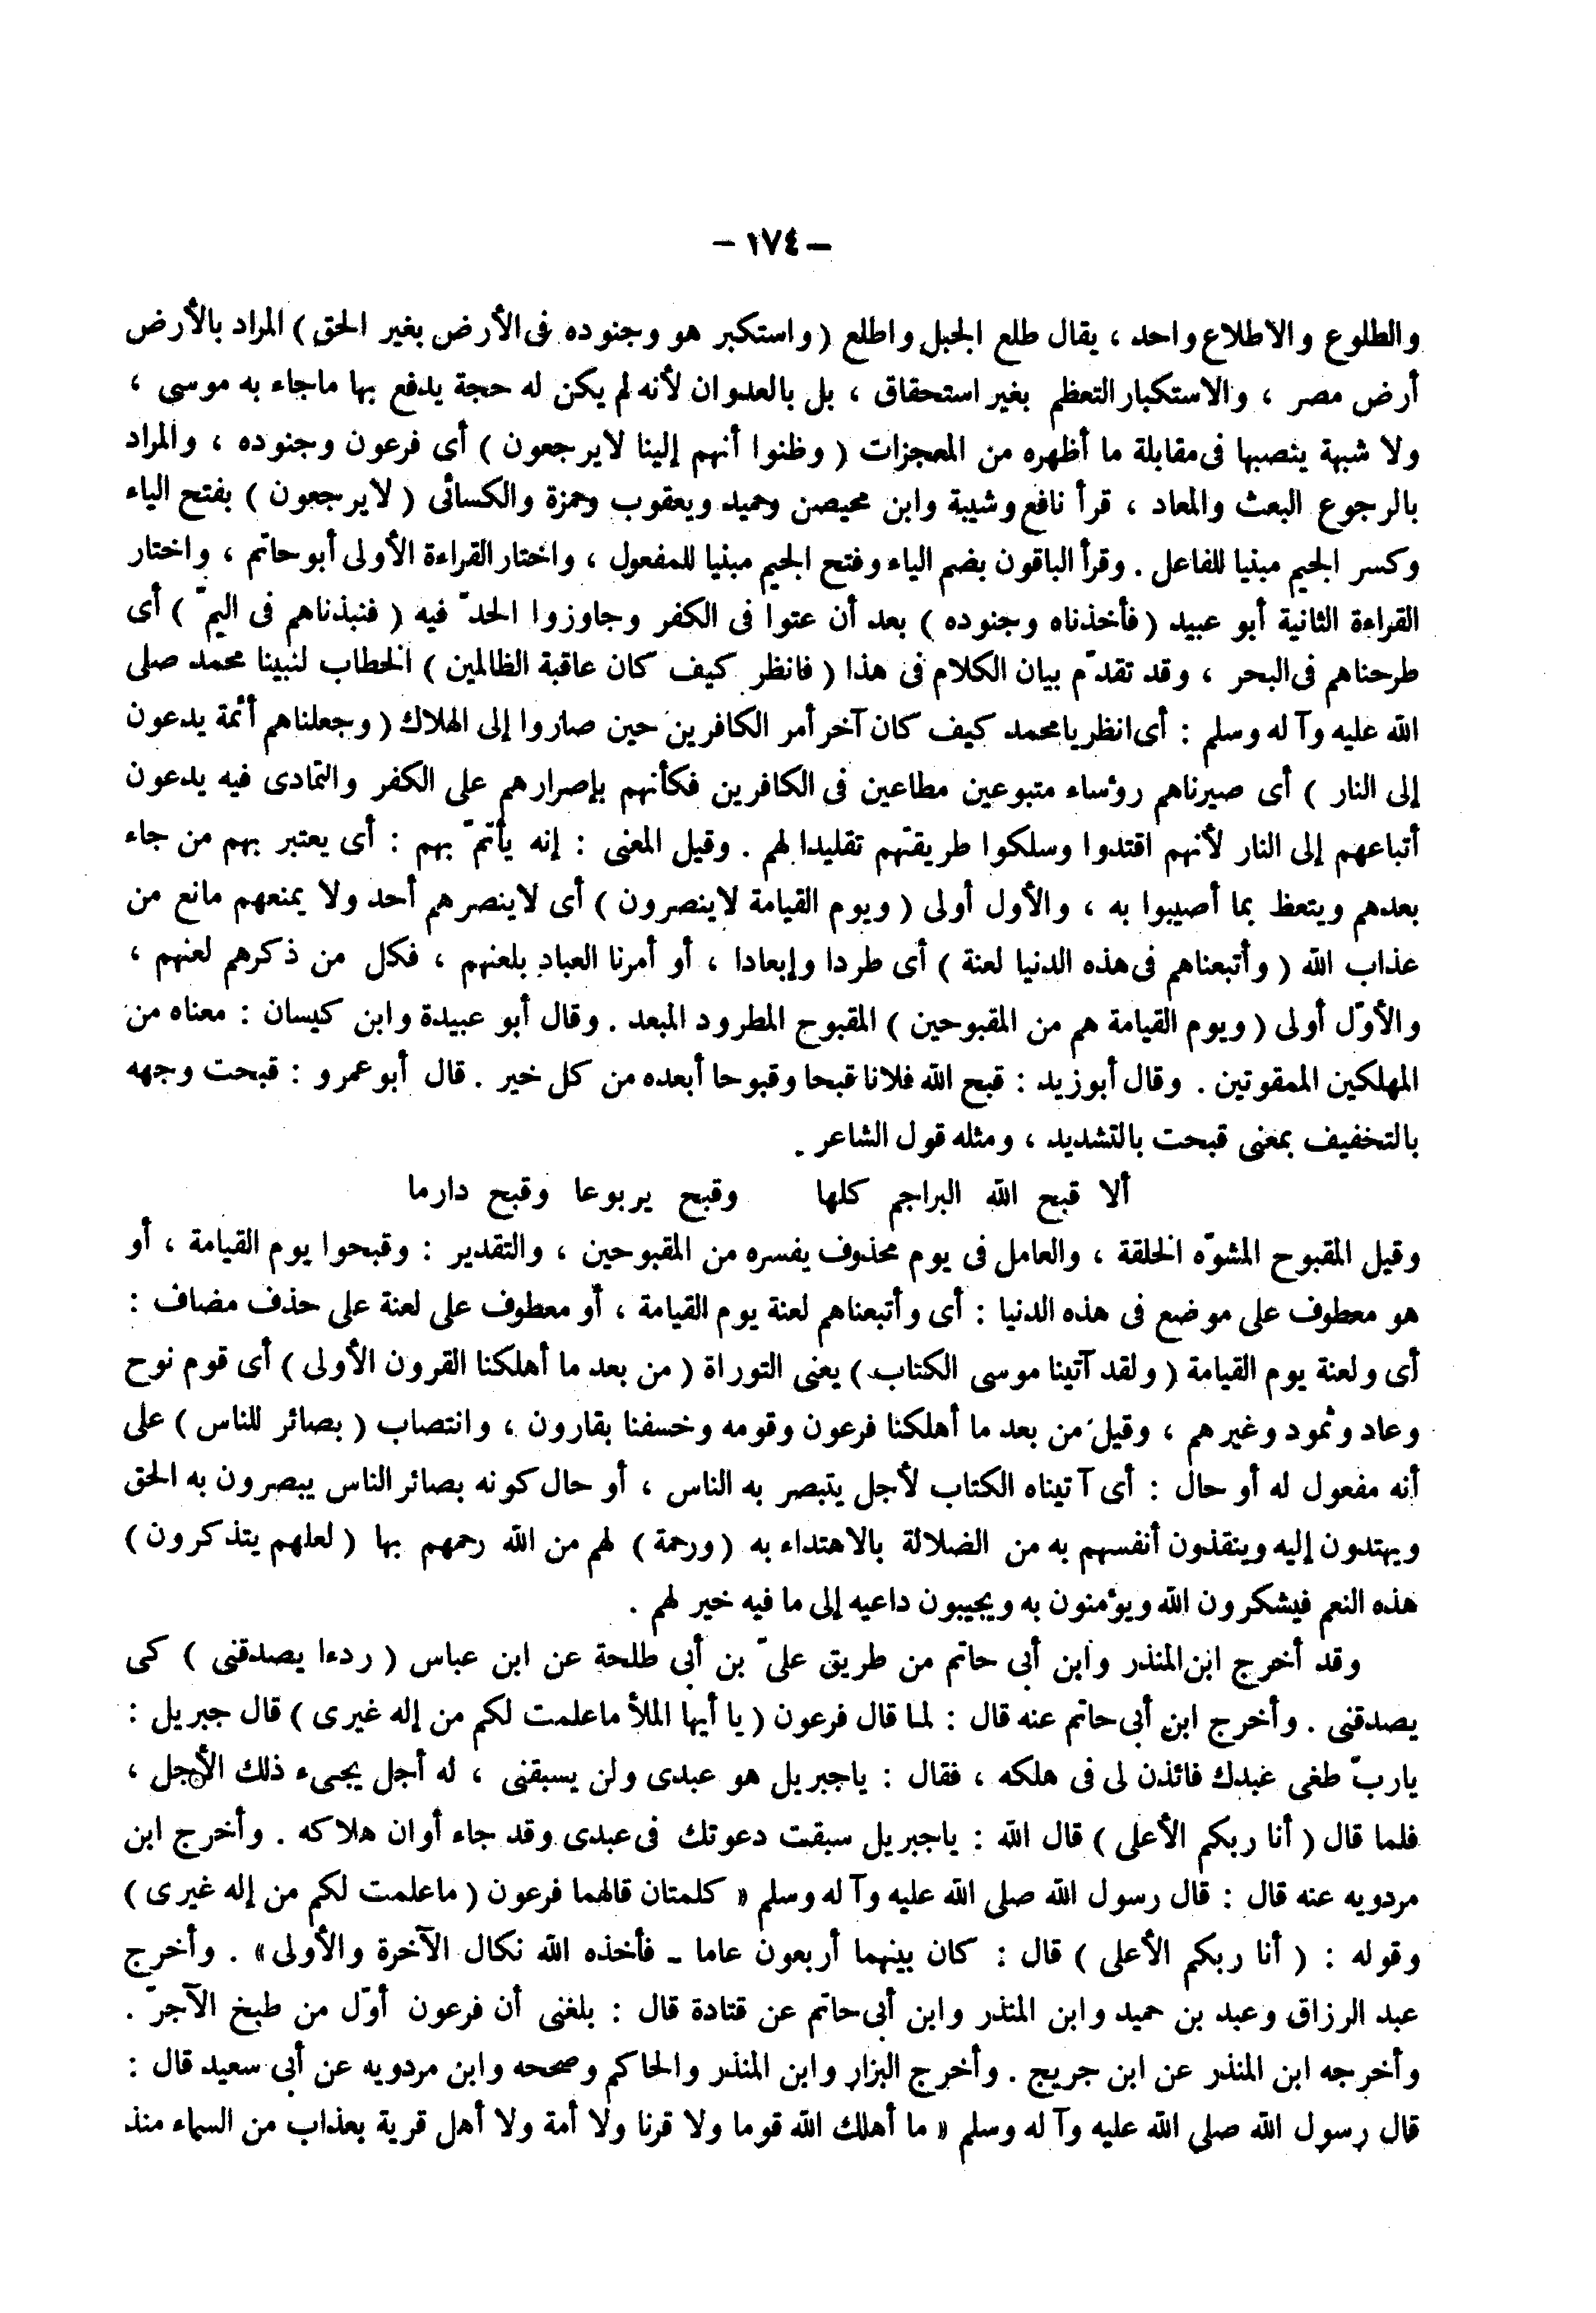 – ١٧٤ –
والطلوع والاطلاع واحد ، يقال طلع الجبل واطلع ( واستكبر هو وجنوده فى الأرض بغير الحق ) المراد بالأرض
أرض مصر ، والاستكبار التعظم بغير استحقاق ، بل بالعدوان لأنه لم يكن له حجة يدفع بها ماجاء به موسى ،
ولا شبهة ينصبها فى مقابلة ما أظهره من المعجزات ( وظنوا أنهم إلينا لايرجعون ) أى فرعون وجنوده ، والمراد
بالرجوع البعث والمعاد ، قرأ نافع وشيبة وابن محيصن وحميد ويعقوب وحمزة والكسائى ( لايرجعون ) بفتح الياء
وكسر الجيم مبنيا للفاعل . وقرأ الباقون بضم الياء وفتح الجيم مبنيا للمفعول ، واختار القراءة الأولى أبو حاتم ، واختار
القراءة الثانية أبو عبيد ( فأخذناه وجنوده ) بعد أن عتوا فى الكفر وجاوزوا الحدّ فيه ( فنبذناهم فى اليمّ ) أى
طرحناهم فى البحر ، وقد تقدّم بيان الكلام فى هذا ( فانظر كيف كان عاقبة الظالمين ) الخطاب لنبينا محمد صلى
الله عليه وآله وسلم : أى انظر يا محمد كيف كان آخر أمر الكافرين حين صاروا إلى الهلاك ( وجعلناهم أئمة يدعون
إلى النار ) أى صيرناهم رؤساء متبوعين مطاعين فى الكافرين فكأنهم بإصرارهم على الكفر والتمادى فيه يدعون
أتباعهم إلى النار لأنهم اقتدوا وسلكوا طريقتهم تقليدا لهم . وقيل المعنى : إنه يأتمّ بهم : أى يعتبر بهم من جاء
بعدهم ويتعظ بما أصيبوا به ، والأول أولى ( ويوم القيامة لاينصرون ) أى لاينصرهم أحد ولا يمنعهم مانع من
عذاب الله ( وأتبعناهم فى هذه الدنيا لعنة ) أى طردا وإبعادا ، أو أمرنا العباد بلعنهم ، فكل من ذكرهم لعنهم ،
والأوّل أولى ( ويوم القيامة هم من المقبوحين ) المقبوح المطرود المبعد . وقال أبو عبيدة وابن كيسان : معناه من
المهلكين الممقوتين . وقال أبوزيد : قبح الله فلانا قبحا وقبوحا أبعده من كل خير . قال أبو عمرو : قبحت وجهه
بالتخفيف بمعنى قبحت بالتشديد ، ومثله قول الشاعر .
ألا قبح الله البراجم كلها وقبح يربوعا وقبح دارما
وقيل المقبوح المشوّه الخلقة ، والعامل فى يوم محذوف يفسره من المقبوحين ، والتقدير : وقبحوا يوم القيامة ، أو
هو معطوف على موضع فى هذه الدنيا : أى وأتبعناهم لعنة يوم القيامة ، أو معطوف على لعنة على حذف مضاف :
أى ولعنة يوم القيامة ( ولقد آتينا موسى الكتاب ) يعنى التوراة ( من بعد ما أهلكنا القرون الأولى ) أى قوم نوح
وعاد وثمود وغيرهم ، وقيل من بعد ما أهلكنا فرعون وقومه وخسفنا بقارون ، وانتصاب ( بصائر للناس ) على
أنه مفعول له أو حال : أى آتيناه الكتاب لأجل يتبصر به الناس ، أو حال كونه بصائر الناس يبصرون به الحق
ويهتدون إليه وينقذون أنفسهم به من الضلالة بالاهتداء به ( ورحمة ) لهم من الله رحمهم بها ( لعلهم يتذكرون )
هذه النعم فيشكرون الله ويؤمنون به ويجيبون داعيه إلى ما فيه خير لهم .
وقد أخرج ابن المنذر وابن أبى حاتم من طريق علىّ بن أبى طلحة عن ابن عباس ( ردءا يصدقنى ) كى
يصدقنى . وأخرج ابن أبى حاتم عنه قال : لما قال فرعون ( يا أيها الملأ ماعلمت لكم من إله غيرى ) قال جبريل :
ياربّ طغى عبدك فائذن لى فى هلكه ، فقال : ياجبريل هو عبدى ولن يسبقنى ، له أجل يجىء ذلك الأجل ،
فلما قال ( أنا ربكم الأعلى ) قال الله : ياجبريل سبقت دعوتك فى عبدى وقد جاء أوان هلاكه . وأخرج ابن
مردويه عنه قال : قال رسول الله صلى الله عليه وآله وسلم « كلمتان قالهما فرعون ( ماعلمت لكم من إله غيرى )
وقوله : ( أنا ربكم الأعلى ) قال : كان بينهما أربعون عاما - فأخذه الله نكال الآخرة والأولى » . وأخرج
عبد الرزاق وعبد بن حميد وابن المنذر وابن أبى حاتم عن قتادة قال : بلغنى أن فرعون أوّل من طبخ الآجرّ .
وأخرجه ابن المنذر عن ابن جريج . وأخرج البزار وابن المنذر والحاكم وصححه وابن مردويه عن أبى سعيد قال :
قال رسول الله صلى الله عليه وآله وسلم « ما أهلك الله قوما ولا قرنا ولا أمة ولا أهل قرية بعذاب من السماء منذ